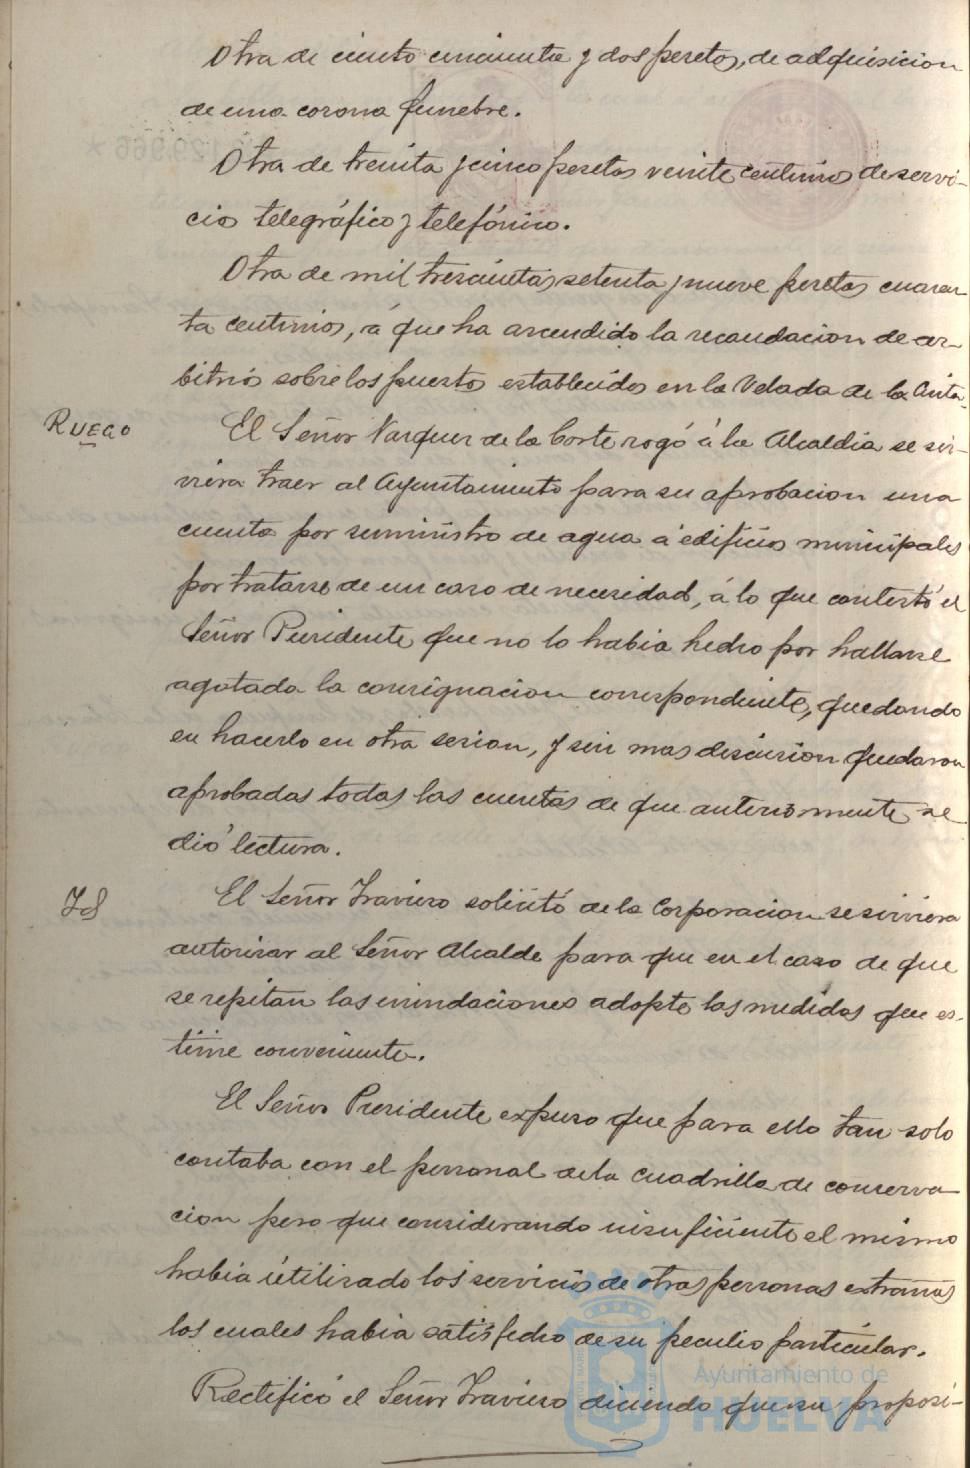 Otra de ciento cincuenta y dos pesetas, de adquisicion
de una corona funebre.
Otra de treinta y cinco pesetas veinte centimos de servi-
cio telegráfico y telefónico.
Otra de mil trescientas setenta y nueve pesetas cuaren
ta centimos, á que ha ascendido la recaudacion de ar-
bitrios sobre los puestos establecidos en la Velada de la Cinta.
RUEGO
El Señor Vazquez de la Corte rogó á la Alcaldia se sir-
viera traer al Ayuntamiento para su aprobacion una
cuenta por suministro de agua á edificios municipales
por tratarse de un caso de necesidad, á lo que contestó el
Señor Presidente que no lo habia hecho por hallarse
agotada la consignacion correspondiente, quedando
en hacerlo en otra sesion, y sin mas discusion quedaron
aprobadas todas las cuentas de que anteriormente se
dió lectura.
Id
El Señor Traviero solicitó de la Corporacion se sirviera
autorizar al Señor Alcalde para que en el caso de que
se repitan las inundaciones adopte las medidas que es-
time conveniente.
El Señor Presidente expuso que para ello tan solo
contaba con el personal de la cuadrilla de conserva
cion pero que considerando insuficiente el mismo
habia utilizado los servicios de otras personas extrañas
los cuales habia satisfecho de su peculio particular.
Rectificó el Señor Traviero diciendo que su proposi-
Ayuntamiento de
HUELVA